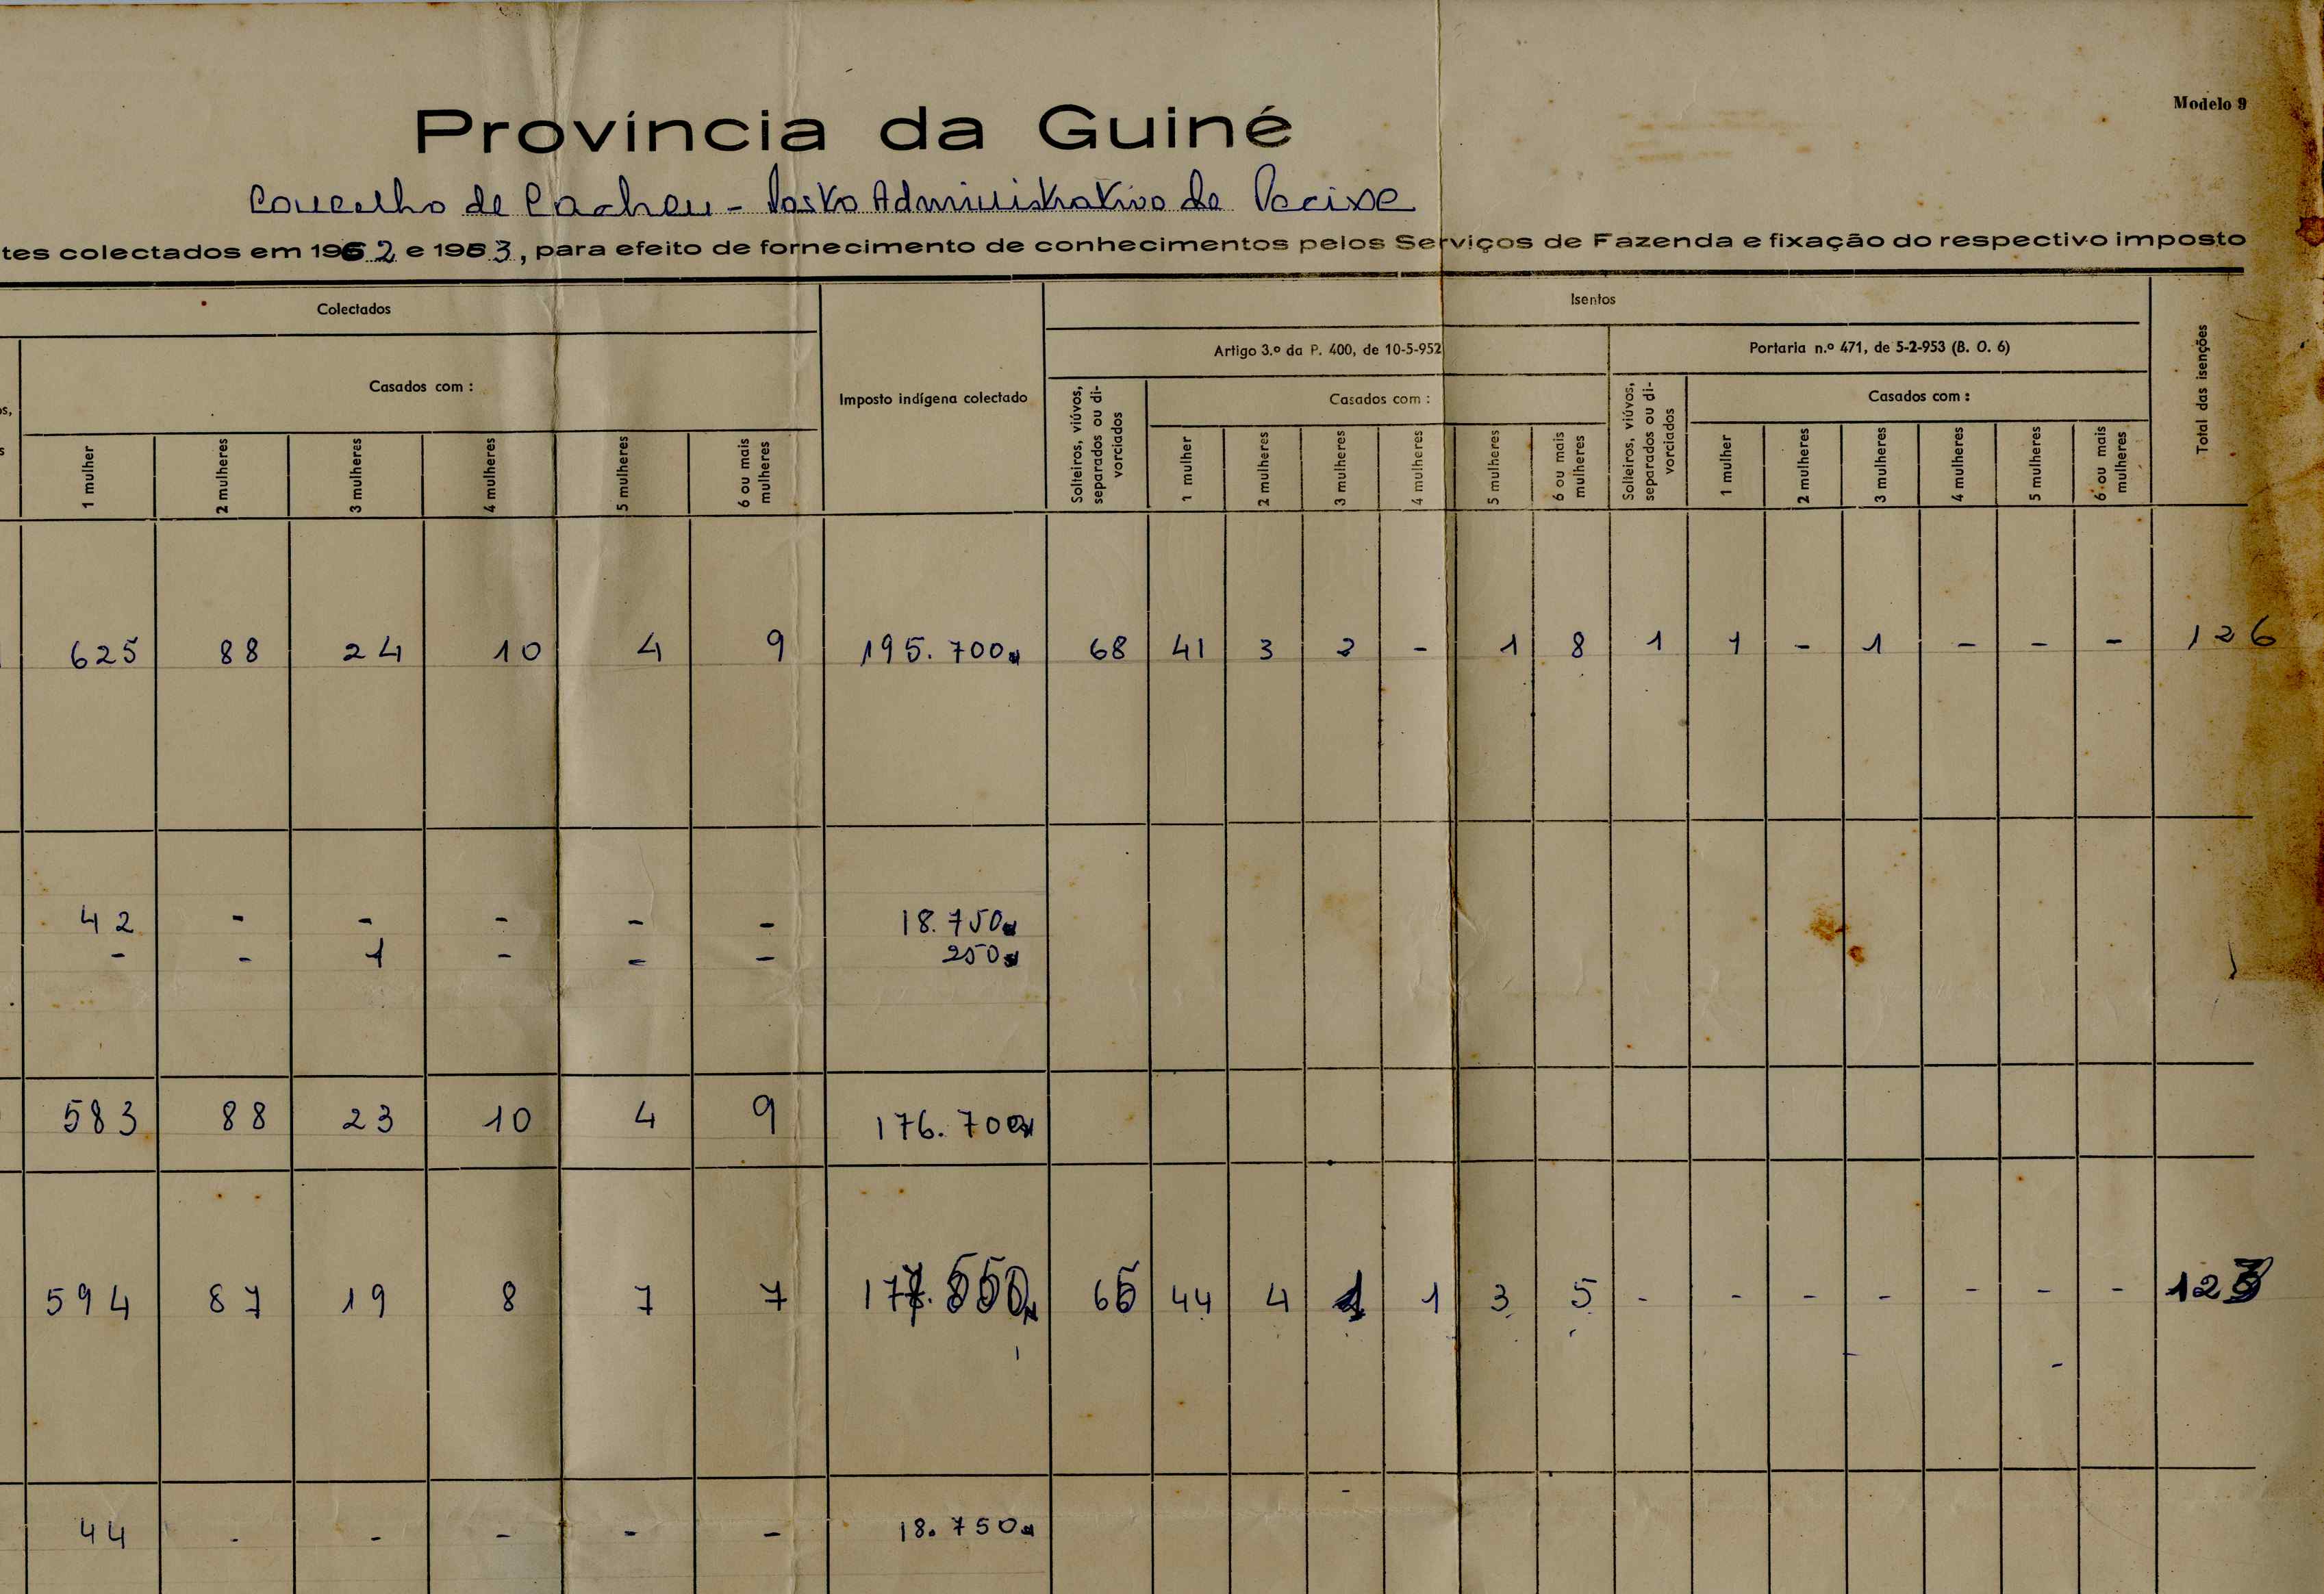 Modelo 9
Província da Guiné
Concelho de Cacheu - Posto Administrativo de Pecixe
tes colectados em 1952 e 1953, para efeito de fornecimento de conhecimentos pelos Serviços de Fazenda e fixação do respectivo imposto
Colectados
Imposto indígena colectado
Isentos
Total das isenções
Casados com :
Artigo 3.º da P. 400, de 10-5-952
Portaria n.º 471, de 5-2-953 (B. O. 6)
os,
s
1 mulher
2 mulheres
3 mulheres
4 mulheres
5 mulheres
6 ou mais
mulheres
Solteiros, viúvos,
separados ou di-
vorciados
Casados com :
1 mulher
2 mulheres
3 mulheres
4 mulheres
5 mulheres
6 ou mais
mulheres
Solteiros, viúvos,
separados ou di-
vorciados
Casados com :
1 mulher
2 mulheres
3 mulheres
4 mulheres
5 mulheres
6 ou mais
mulheres
625 88 24 10 4 9 195.700$ 68 41 3 2 - 1 8 1 1 - 1 - - - 126
42 - - - - - 18.750$
- - 1 - - - 250$
583 88 23 10 4 9 176.700$
594 87 19 8 7 7 65 44 4 1 1 3 5 - - - - - - - 123
44 - - - - - 18.750$